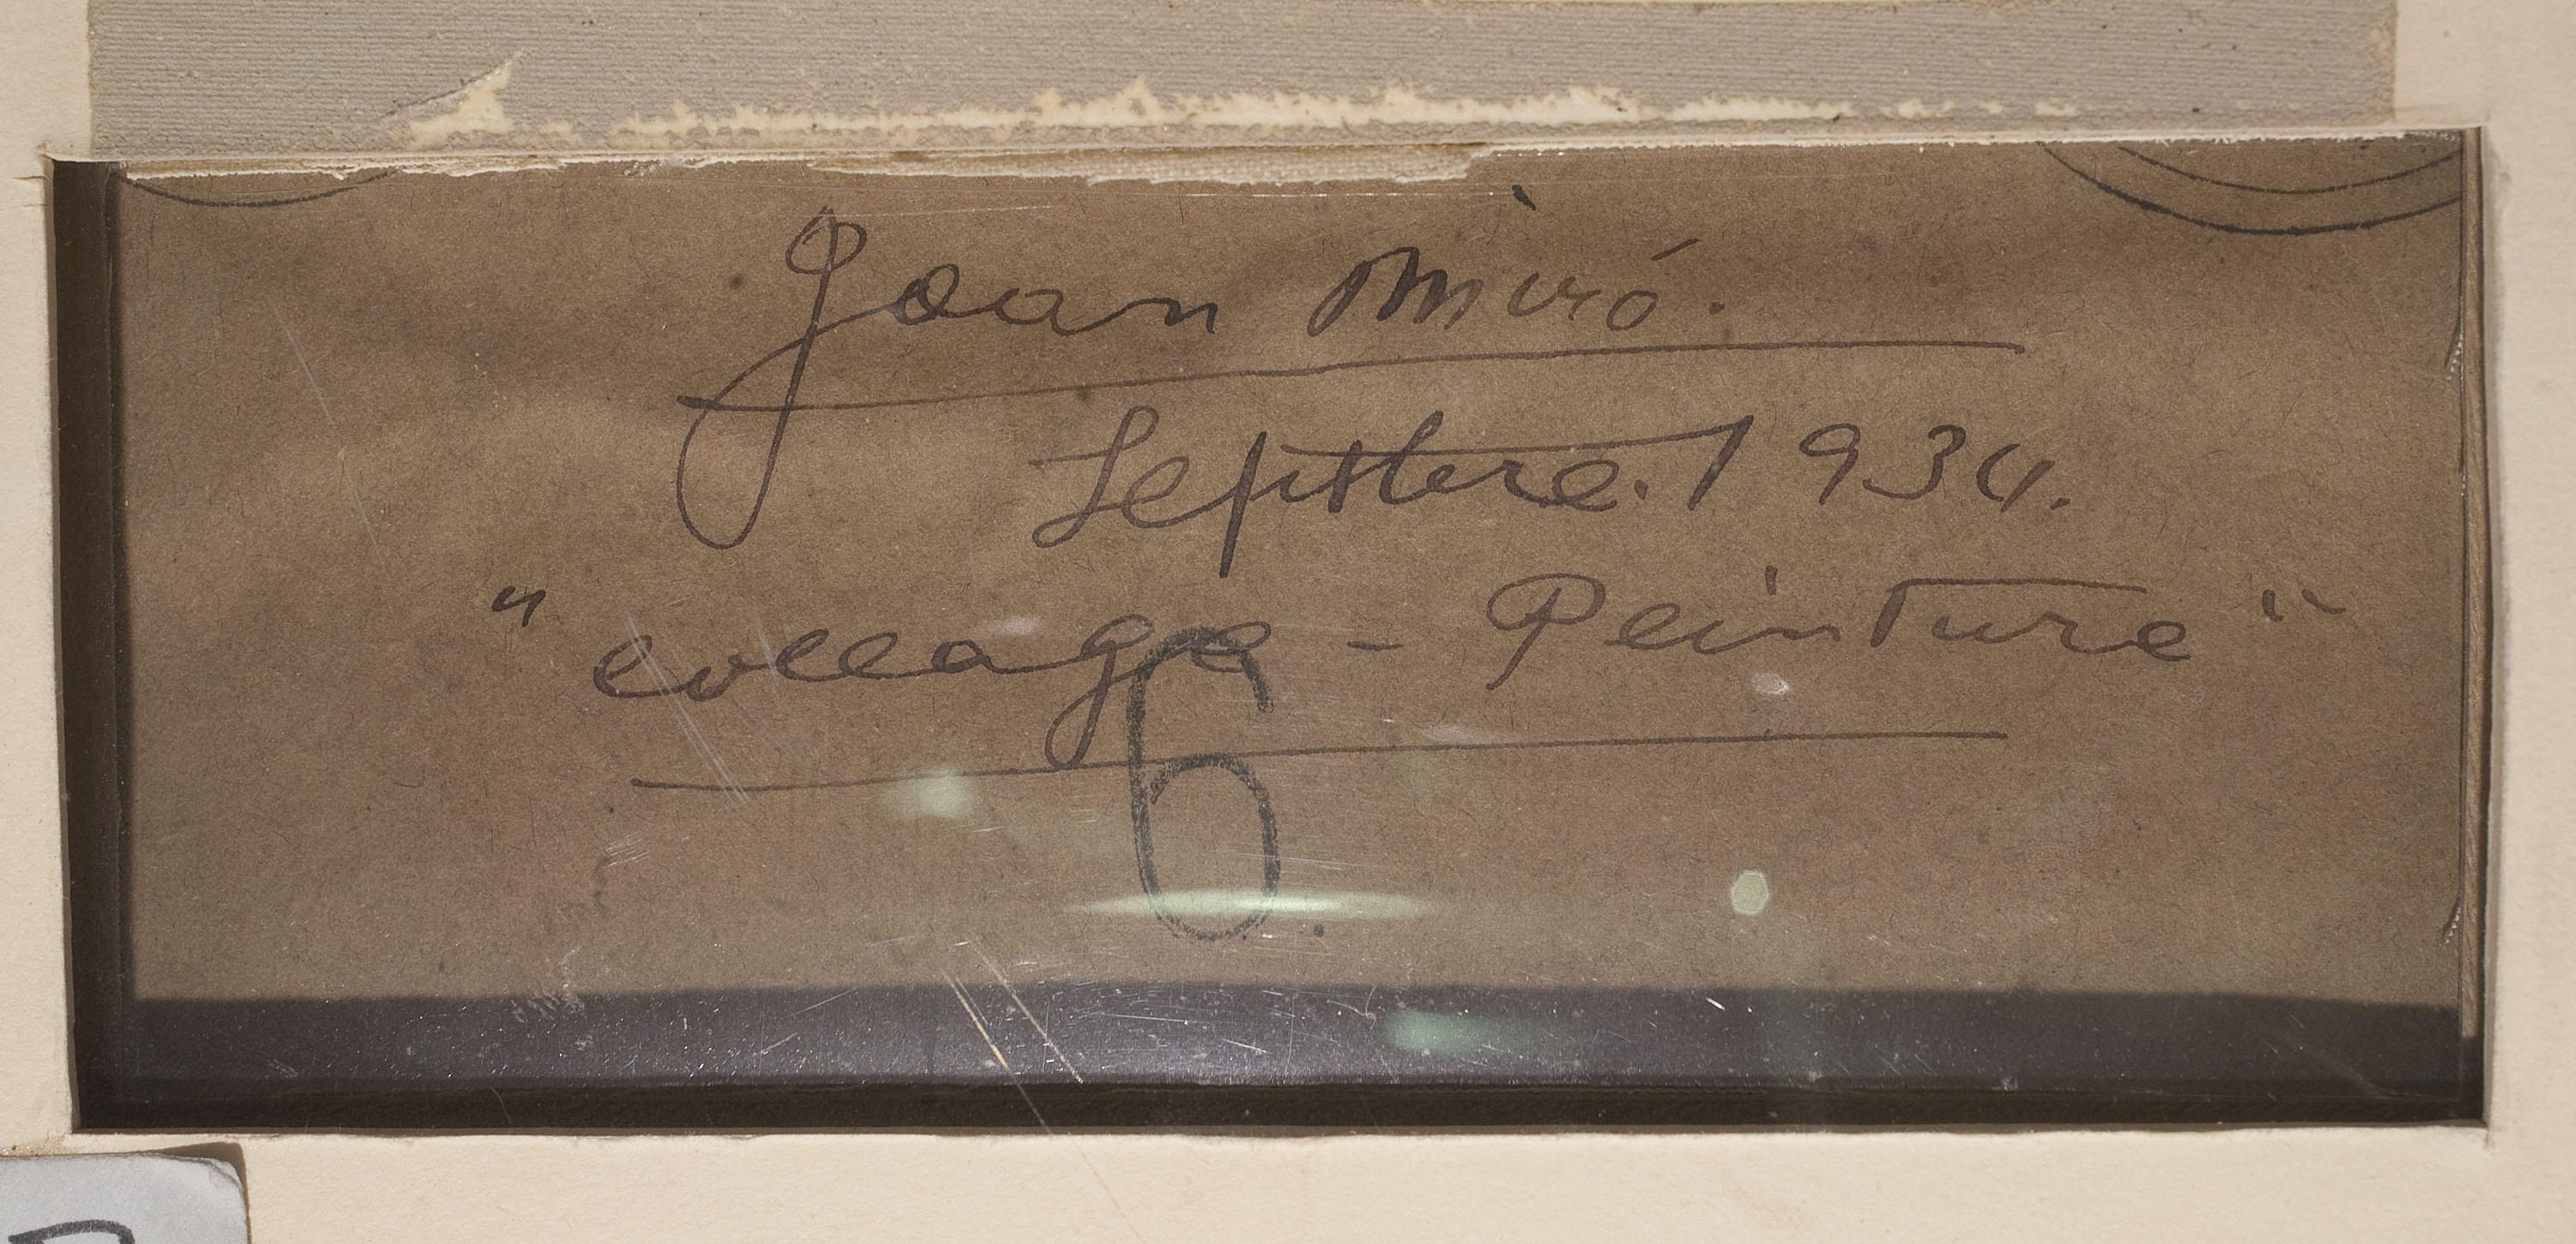 Joan Miró.
Septbre. 1934.
"collage - Peinture"
6.